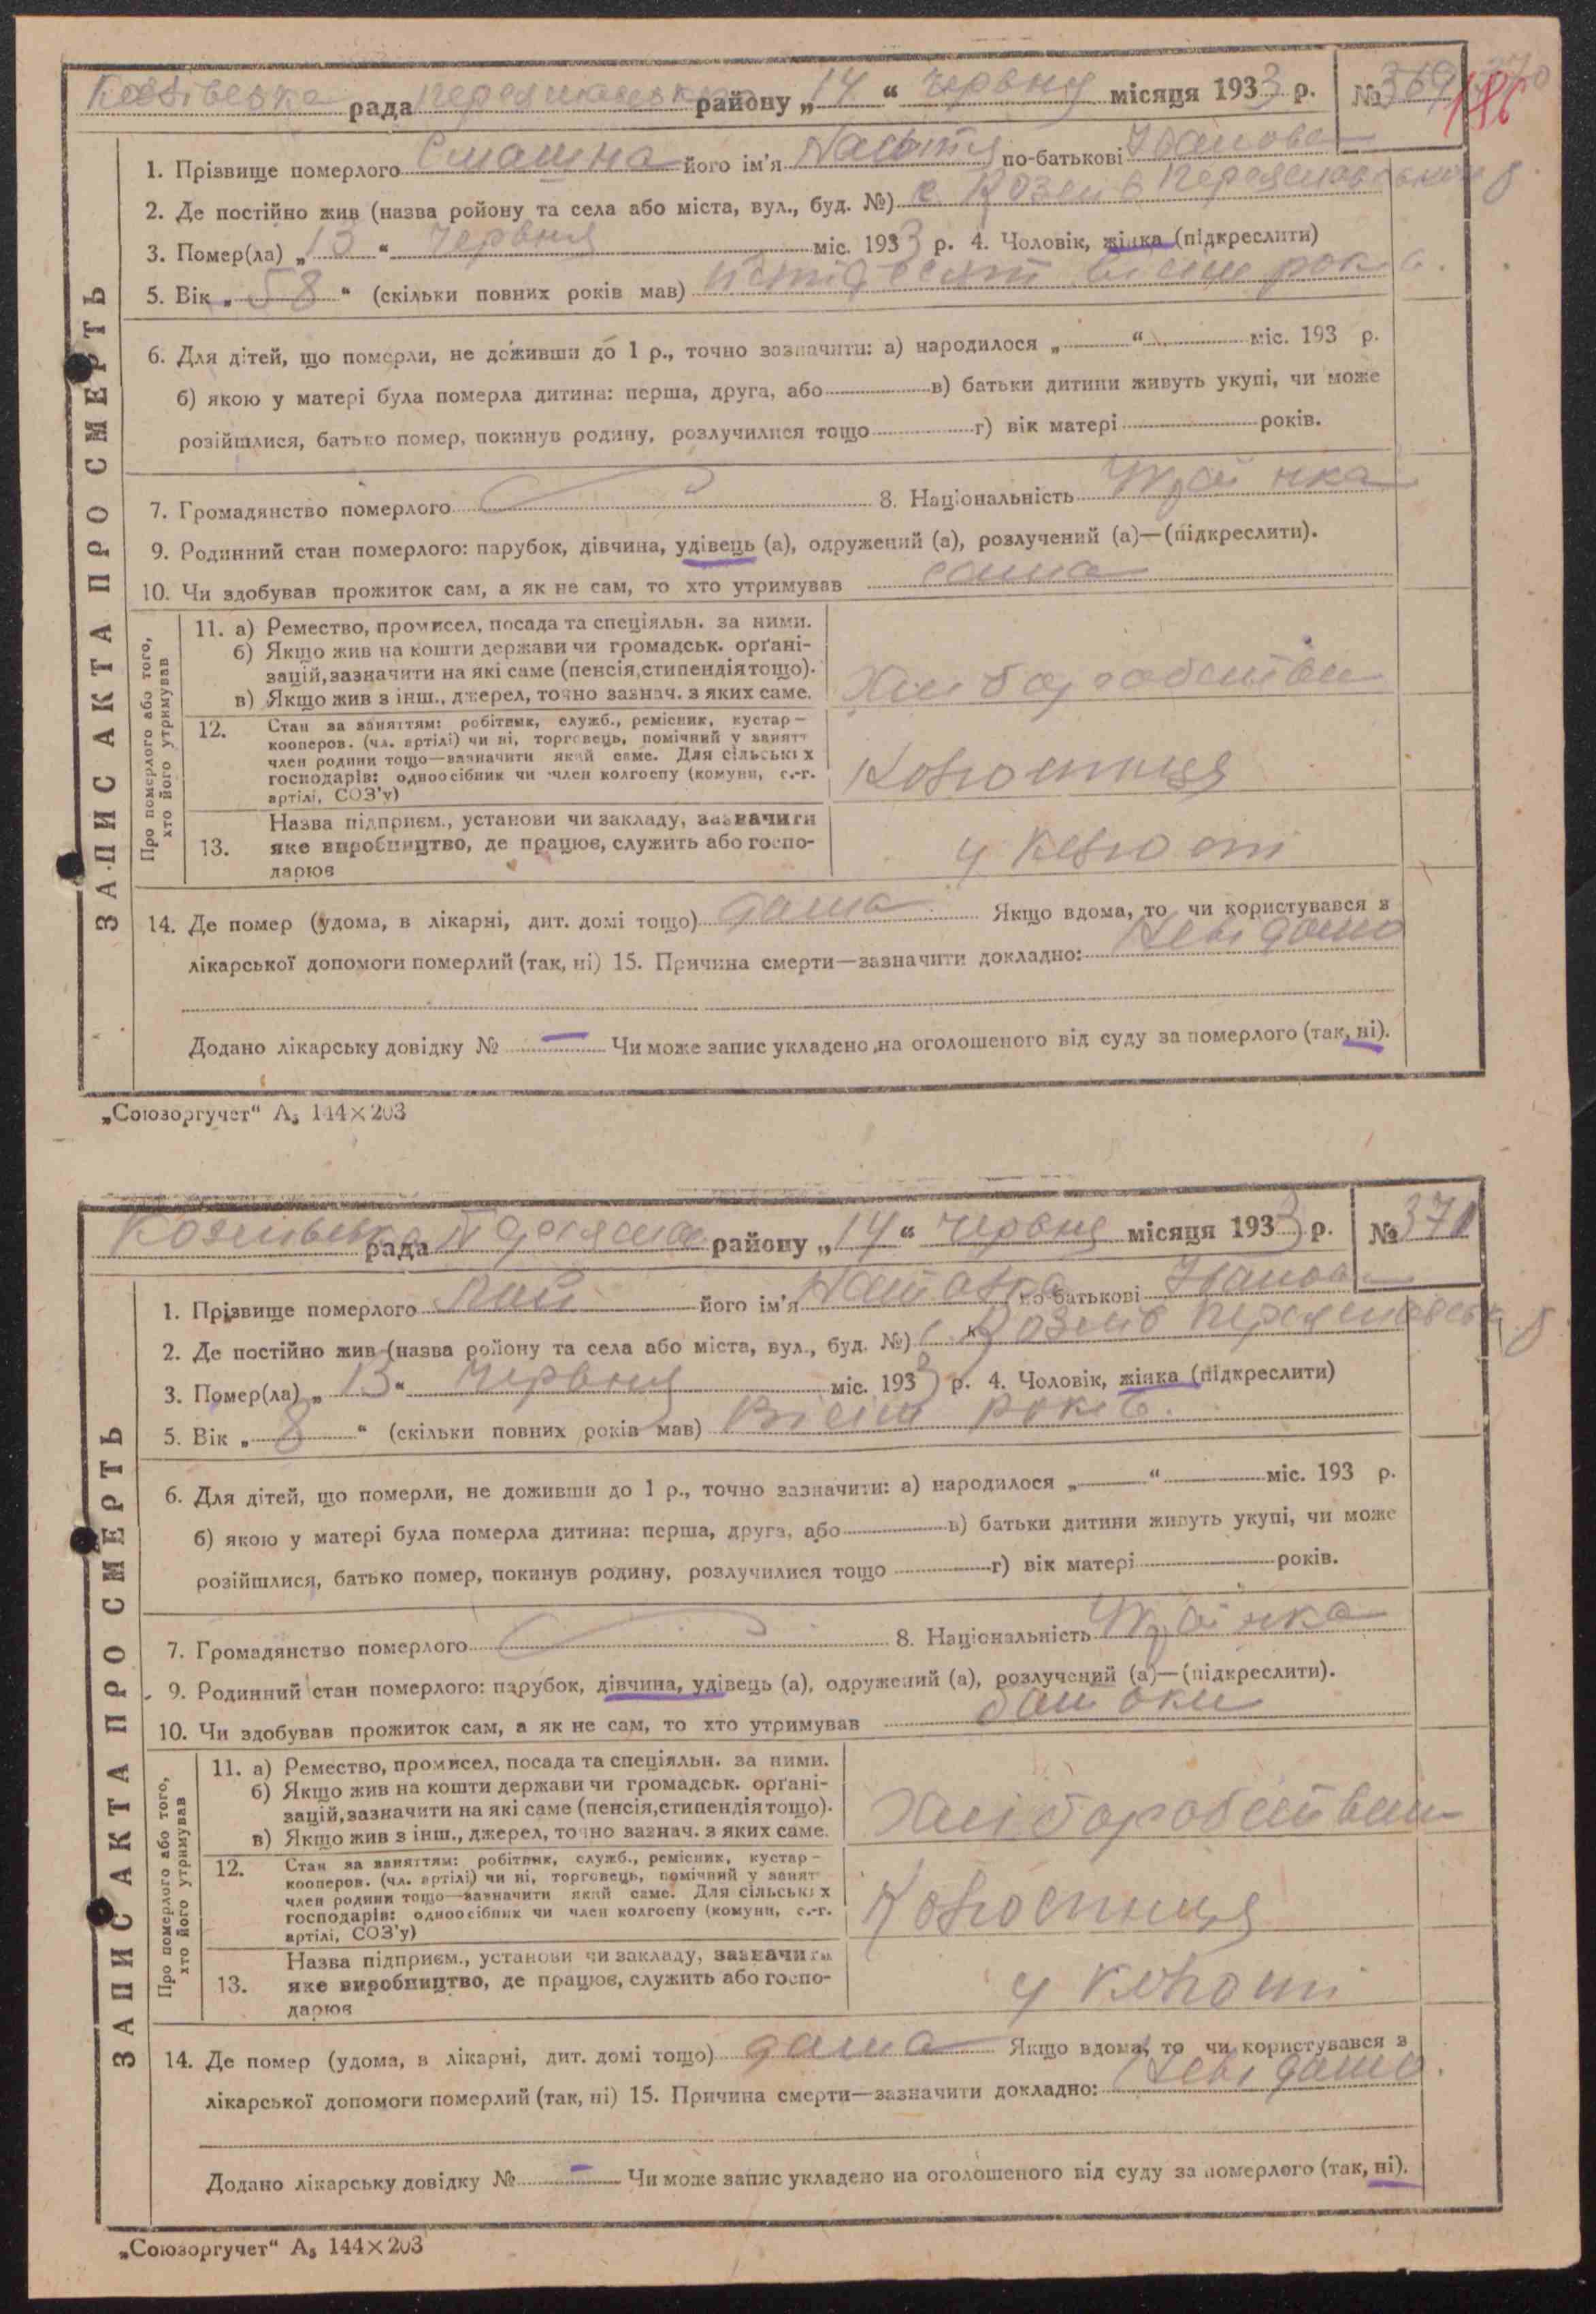 рада районну „14“ червня місяця 1933 р. № 369
186
ЗАПИС АКТА ПРО СМЕРТЬ
1. Прізвище померлого його ім'я Настя по-батькові Іванова
2. Де постійно жив (назва ройону та села або міста, вул., буд. №) с. Козлів Переяславськ р
3. Помер(ла) „13“ червня міс. 1933 р. 4. Чоловік, жінка (підкреслити)
5. Вік „58“ (скільки повних років мав) пятдесят вісим років.
6. Для дітей, що померли, не доживши до 1 р., точно зазначити: а) народилося „ “ міс. 193 р.
б) якою у матері була померла дитина: перша, друга, або в) батьки дитини живуть укупі, чи може
розійшлися, батько помер, покинув родину, розлучилися тощо г) вік матері років.
7. Громадянство померлого 8. Національність Українка
9. Родинний стан померлого: парубок, дівчина, удівець (а), одружений (а), розлучений (а)—(підкреслити).
10. Чи здобував прожиток сам, а як не сам, то хто утримував сама
Про померлого або того, хто його утримував
11. а) Ремество, промисел, посада та спеціяльн. за ними.
б) Якщо жив на кошти держави чи громадськ. орґані-
зацій, зазначити на які саме (пенсія, стипендія тощо).
в) Якщо жив з інш., джерел, точно зазнач. з яких саме.
12. Стан за заняттям: робітник, служб., ремісник, кустар—
кооперов. (чл. артілі) чи ні, торговець, помічний у занятт
член родини тощо—зазначити який саме. Для сільських
господарів: одноосібник чи член колгоспу (комуни, с.-г.
артілі, СОЗ'у)
Колгоспниця
13. Назва підприєм., установи чи закладу, зазначити
яке виробництво, де працює, служить або госпо-
дарює
у колгоспі
14. Де помер (удома, в лікарні, дит. домі тощо) дома Якщо вдома, то чи користувався з
лікарської допомоги померлий (так, ні) 15. Причина смерти—зазначити докладно: Невідомо
Додано лікарську довідку № — Чи може запис укладено на оголошеного від суду за померлого (так, ні).
„Союзоргучет“ А₅ 144×203
Козлівська рада району „14“ червня місяця 1933 р. № 371
ЗАПИС АКТА ПРО СМЕРТЬ
1. Прізвище померлого його ім'я Наталка по-батькові Іванова
2. Де постійно жив (назва ройону та села або міста, вул., буд. №) с. Козлів Переяславськ. р
3. Помер(ла) „13“ червня міс. 1933 р. 4. Чоловік, жінка (підкреслити)
5. Вік „8“ (скільки повних років мав) Вісім років.
6. Для дітей, що померли, не доживши до 1 р., точно зазначити: а) народилося „ “ міс. 193 р.
б) якою у матері була померла дитина: перша, друга, або в) батьки дитини живуть укупі, чи може
розійшлися, батько помер, покинув родину, розлучилися тощо г) вік матері років.
7. Громадянство померлого 8. Національність Українка
9. Родинний стан померлого: парубок, дівчина, удівець (а), одружений (а), розлучений (а)—(підкреслити).
10. Чи здобував прожиток сам, а як не сам, то хто утримував батьки
Про померлого або того, хто його утримував
11. а) Ремество, промисел, посада та спеціяльн. за ними.
б) Якщо жив на кошти держави чи громадськ. орґані-
зацій, зазначити на які саме (пенсія, стипендія тощо).
в) Якщо жив з інш., джерел, точно зазнач. з яких саме.
12. Стан за заняттям: робітник, служб., ремісник, кустар—
кооперов. (чл. артілі) чи ні, торговець, помічний у занят
член родини тощо—зазначити який саме. Для сільських
господарів: одноосібник чи член колгоспу (комуни, с.-г.
артілі, СОЗ'у)
Колгоспниця
13. Назва підприєм., установи чи закладу, зазначити
яке виробництво, де працює, служить або госпо-
дарює
у колгоспі
14. Де помер (удома, в лікарні, дит. домі тощо) дома Якщо вдома, то чи користувався з
лікарської допомоги померлий (так, ні) 15. Причина смерти—зазначити докладно: Невідомо.
Додано лікарську довідку № — Чи може запис укладено на оголошеного від суду за померлого (так, ні).
„Союзоргучет“ А₅ 144×203